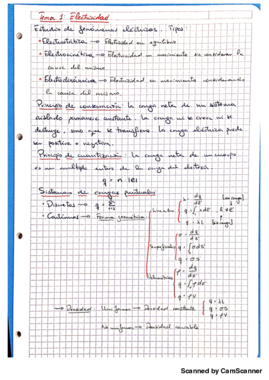 Tema 1: Electricidad
Estudio de fenómenos eléctricos. Tipos:
• Electrostática → Electricidad en equilibrio
• Electrocinética → Electricidad en movimiento sin considerar la
causa del mismo
• Electrodinámica → Electricidad en movimiento considerando
la causa del mismo.
Principio de conservación: La carga neta de un sistema
aislado permanece constante. La carga ni se crea ni se
destruye, sino que se transfiere. La carga eléctrica puede
ser positiva o negativa.
Principio de cuantización: La carga neta de un cuerpo
es un múltiplo entero de la carga del electrón
q = n · |e|
Sistemas de cargas puntuales
• Discretas → q =
• Continuas → Forma geométrica
Lineales
λ = dq/dl
q = ∫ λ dl
q = λL
Superficiales
σ = dq/ds
q = ∫ σ ds
q = σS
Volumétricas
ρ = dq/dv
q = ∫ ρ dv
q = ρV
→ Densidad Uniforme → Densidad constante
q = λL
q = σS
q = ρV
No uniforme → Densidad variable
Scanned by CamScanner